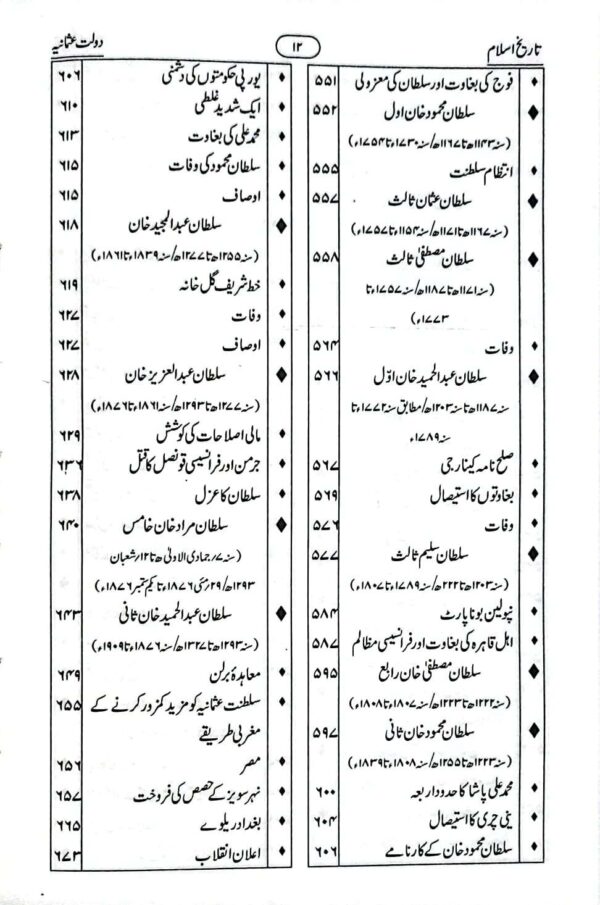 تاریخ اسلام ۱۲ دولت عثمانیہ
♦ فوج کی بغاوت اور سلطان کی معزولی ۵۵۱
♦ سلطان محمود خان اول ۵۵۲
(سنہ ۱۱۴۳ھ تا ۱۱۶۷ھ/سنہ ۱۷۳۰ء تا ۱۷۵۴ء)
♦ انتظام سلطنت ۵۵۵
♦ سلطان عثمان ثالث ۵۵۷
(سنہ ۱۱۶۷ھ تا ۱۱۷۱ھ/سنہ ۱۱۵۴ء تا ۱۷۵۷ء)
♦ سلطان مصطفیٰ ثالث ۵۵۸
(سنہ ۱۱۷۱ھ تا ۱۱۸۷ھ/سنہ ۱۷۵۷ء تا
۱۷۷۳ء)
♦ وفات ۵۶۴
♦ سلطان عبدالحمید خان اوّل ۵۶۶
سنہ ۱۱۸۷ھ تا ۱۲۰۳ھ/مطابق سنہ ۱۷۷۲ء تا
سنہ ۱۷۸۹ء
♦ صلح نامہ کینارجی ۵۶۷
♦ بغاوتوں کا استیصال ۵۶۹
♦ وفات ۵۷۶
♦ سلطان سلیم ثالث ۵۷۷
(سنہ ۱۲۰۳ھ تا ۱۲۲۲ھ/سنہ ۱۷۸۹ء تا ۱۸۰۷ء)
♦ نپولین بونا پارٹ ۵۸۴
♦ اہل قاہرہ کی بغاوت اور فرانسیسی مظالم ۵۸۷
♦ سلطان مصطفیٰ خان رابع ۵۹۵
(سنہ ۱۲۲۲ھ تا ۱۲۲۳ھ/سنہ ۱۸۰۷ء تا ۱۸۰۸ء)
♦ سلطان محمود خان ثانی ۵۹۷
(سنہ ۱۲۲۳ھ تا ۱۲۵۵ھ/سنہ ۱۸۰۸ء تا ۱۸۳۹ء)
♦ محمد علی پاشا کا حدود اربعہ ۶۰۰
♦ ینی چری کا استیصال ۶۰۴
♦ سلطان محمود خان کے کارنامے ۶۰۶
♦ یورپی حکومتوں کی دشمنی ۶۰۶
♦ ایک شدید غلطی ۶۱۰
♦ محمد علی کی بغاوت ۶۱۳
♦ سلطان محمود کی وفات ۶۱۵
♦ اوصاف ۶۱۵
♦ سلطان عبدالمجید خان ۶۱۸
(سنہ ۱۲۵۵ھ تا ۱۲۷۷ھ/سنہ ۱۸۳۹ء تا ۱۸۶۱ء)
♦ خط شریف گل خانہ ۶۱۹
♦ وفات ۶۲۷
♦ اوصاف ۶۲۷
♦ سلطان عبدالعزیز خان ۶۲۸
(سنہ ۱۲۷۷ھ تا ۱۲۹۳ھ/سنہ ۱۸۶۱ء تا ۱۸۷۶ء)
♦ مالی اصلاحات کی کوشش ۶۲۹
♦ جرمن اور فرانسیسی قونصل کا قتل ۶۳۶
♦ سلطان کا عزل ۶۳۸
♦ سلطان مراد خان خامس ۶۴۰
(سنہ ۷/جمادی الاولیٰ ھ تا ۱۲/شعبان
۱۲۹۳ھ/۲۹/مئی ۱۸۷۶ء تا یکم ستمبر ۱۸۷۶ء)
♦ سلطان عبدالحمید خان ثانی ۶۴۳
(سنہ ۱۲۹۳ھ تا ۱۳۲۷ھ/سنہ ۱۸۷۶ء تا ۱۹۰۹ء)
♦ معاہدۂ برلن ۶۴۹
♦ سلطنت عثمانیہ کو مزید کمزور کرنے کے ۶۵۵
مغربی طریقے
♦ مصر ۶۵۶
♦ نہر سویز کے حصص کی فروخت ۶۵۷
♦ بغداد ریلوے ۶۶۵
♦ اعلان انقلاب ۶۷۳